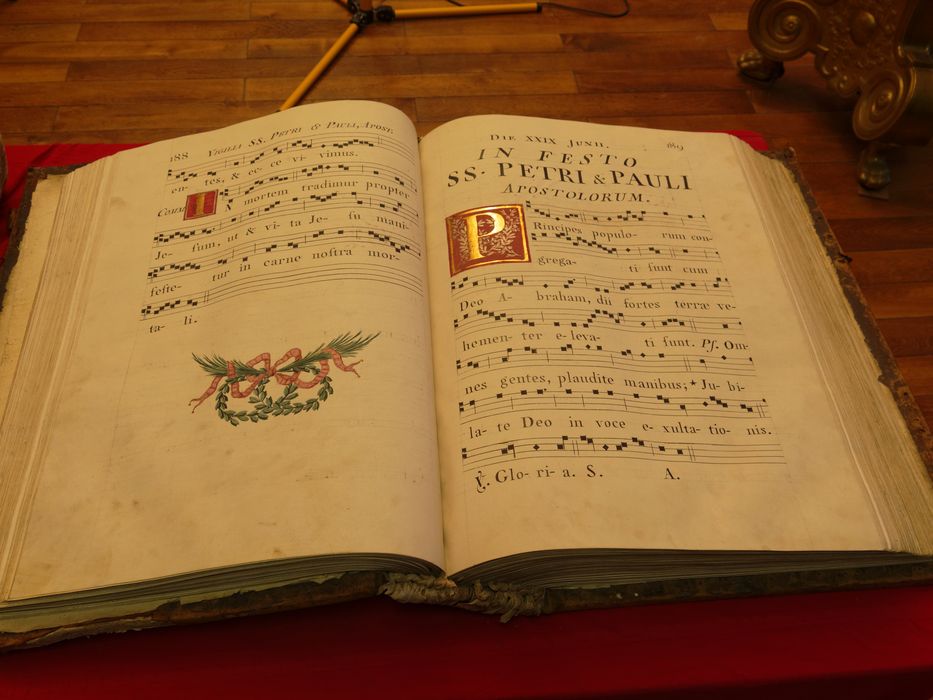 188 VIGILIA SS. PETRI & PAULI, APOST.
en- tes, & ec- ce vi- vimus.
N mortem tradimur propter
Je- sum, ut & vi- ta Je- su mani-
feste- tur in carne nostra mor-
ta- li.
DIE XXIX JUNII.
IN FESTO
SS. PETRI & PAULI
APOSTOLORUM.
PRincipes populo- rum con-
grega- ti sunt cum
Deo A- braham, dii fortes terræ ve-
hemen- ter e-leva- ti sunt. Ps. Om-
nes gentes, plaudite manibus; * Ju- bi-
la- te Deo in voce e- xulta- tio- nis.
℣. Glo- ri- a. S. A.